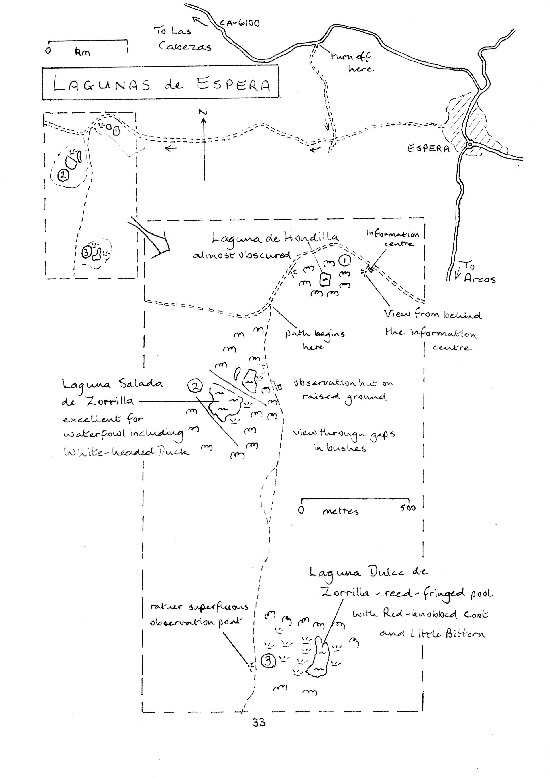 To Las
Cabezas
CA-6100
turn off
here.
0 km
LAGUNAS de ESPERA
N
ESPERA
To
Arcos
2
3
Laguna de Hondilla
almost obscured
1
information
centre
View from behind
the information
centre
path begins
here
Laguna Salada
de Zorrilla
excellent for
waterfowl including
White-headed Duck
2
observation hut on
raised ground
view through gaps
in bushes
0 metres 500
Laguna Dulce de
Zorrilla - reed-fringed pool
with Red-knobbed Coot
and Little Bittern
rather superfluous
observation post
3
33